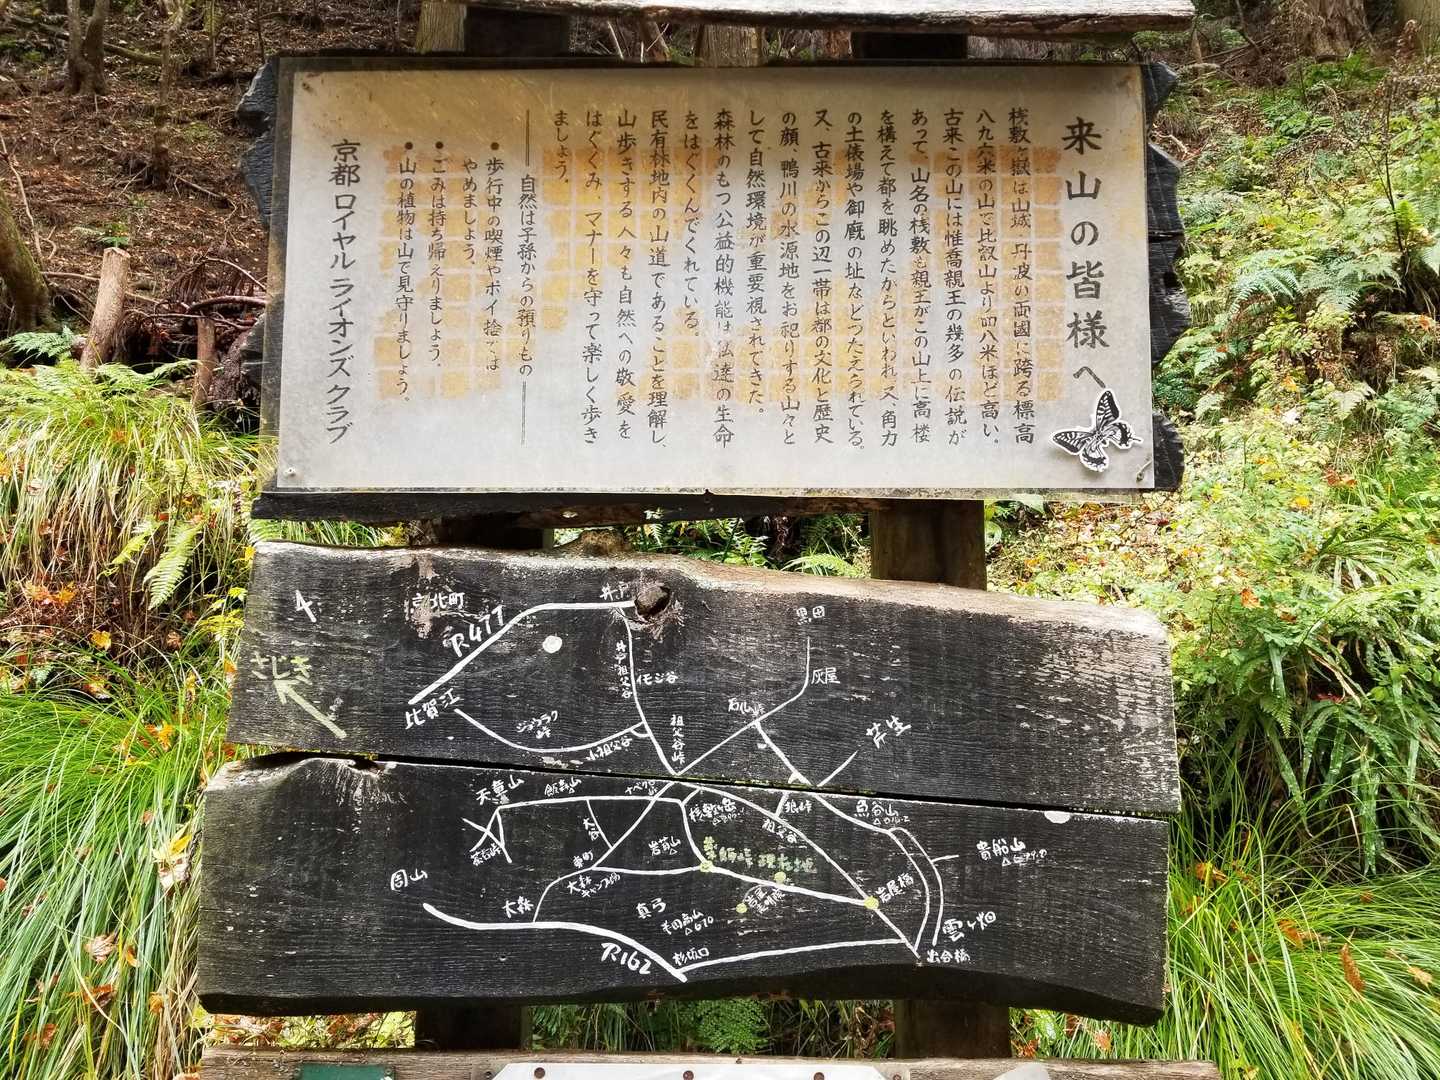 来山の皆様へ
桟敷ヶ嶽は山城、丹波の両國に跨る標高
八九六米の山で比叡山より四八米ほど高い。
古来この山には惟喬親王の幾多の伝説が
あって、山名の桟敷も親王がこの山上に高楼
を構えて都を眺めたからといわれ、又、角力
の土俵場や御厩の址などつたえられている。
又、古来からこの辺一帯は都の文化と歴史
の顔、鴨川の水源地をお祀りする山々と
して自然環境が重要視されてきた。
森林のもつ公益的機能は私達の生命
をはぐくんでくれている。
民有林地内の山道であることを理解し、
山歩きする人々も自然への敬愛を
はぐくみ、マナーを守って楽しく歩き
ましょう。
自然は子孫からの預りもの
●歩行中の喫煙やポイ捨ては
やめましょう。
●ごみは持ち帰えりましょう。
●山の植物は山で見守りましょう。
京都ロイヤルライオンズクラブ
4
京北町
R477
井戸
黒田
さじき
井戸祖父谷
イモジ谷
灰屋
比賀江
ジョウラク峠
小祖父谷
祖父谷峠
石仏峠
芦生
天童山
飯森山
ナベクロ峠
桟敷ヶ岳
狼峠
魚谷山
貴船山
茶呑峠
大谷
岩茸山
祖父谷
東町
薬師峠
現在地
周山
大森キャンプ場
岩屋山志明院
岩屋橋
大森
真弓
半国高山
△670
雲ヶ畑
R162
杉坂口
出合橋